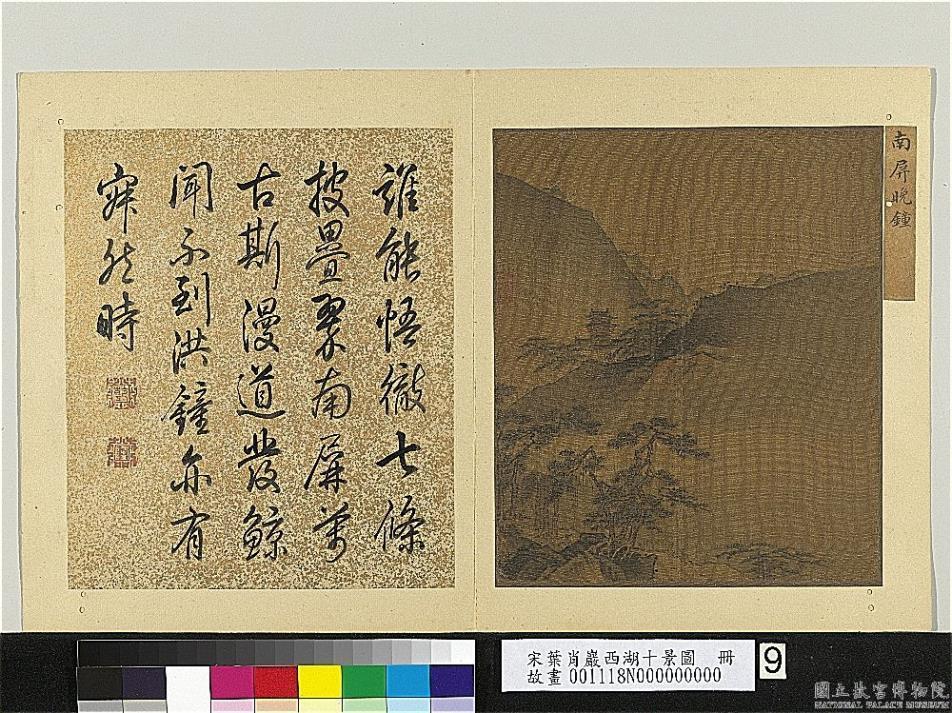 南屏晚鍾
誰能悟徹七條
披疊翠南屏萬
古斯漫道發鯨
聞不到洪鐘亦有
寂然時
宋葉肖巖西湖十景圖 冊
故畫 001118N000000000
9
國立故宮博物院
NATIONAL PALACE MUSEUM